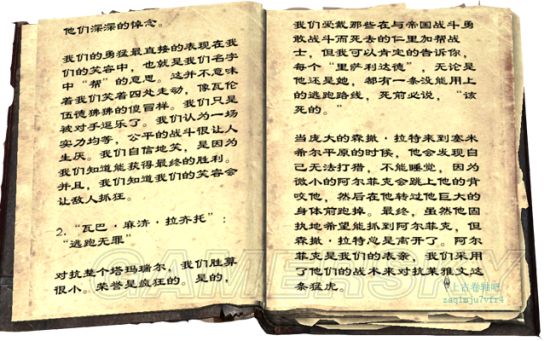 他们深深的悼念。
我们的勇猛最直接的表现在我
们的笑容中，也就是我们名字
中“帮”的意思。这并不意味
着我们笑着四处走动，像瓦伦
伍德狒狒的傻冒样。我们只是
被对手逗乐了。我们认为一场
实力均等，公平的战斗很让人
生厌。我们自信地笑，是因为
我们知道能获得最终的胜利。
并且，我们知道我们的笑容会
让敌人抓狂。
2.“瓦巴·麻济·拉齐托”：
“逃跑无罪”
对抗整个塔玛瑞尔，我们胜算
很小。荣誉是疯狂的。是的，
我们爱戴那些在与帝国战斗勇
敢战斗而死去的仁里加帮战
士，但我可以肯定的告诉你，
每个“里萨利达德”，无论是
他还是她，都有一条没能用上
的逃跑路线，死前必说，“该
死的。”
当庞大的森撒·拉特来到塞米
希尔平原的时候，他会发现自
己无法打猎，不能睡觉，因为
微小的阿尔菲克会跳上他的背
咬他，然后在他转过他巨大的
身体前跑掉。最终，虽然他固
执地希望能抓到阿尔菲克，但
森撒·拉特总是离开了。阿尔
菲克是我们的表亲，我们采用
了他们的战术来对抗莱雅文这
条猛虎。
GAMERSKY
上古卷轴吧
zaqimju7vfr4